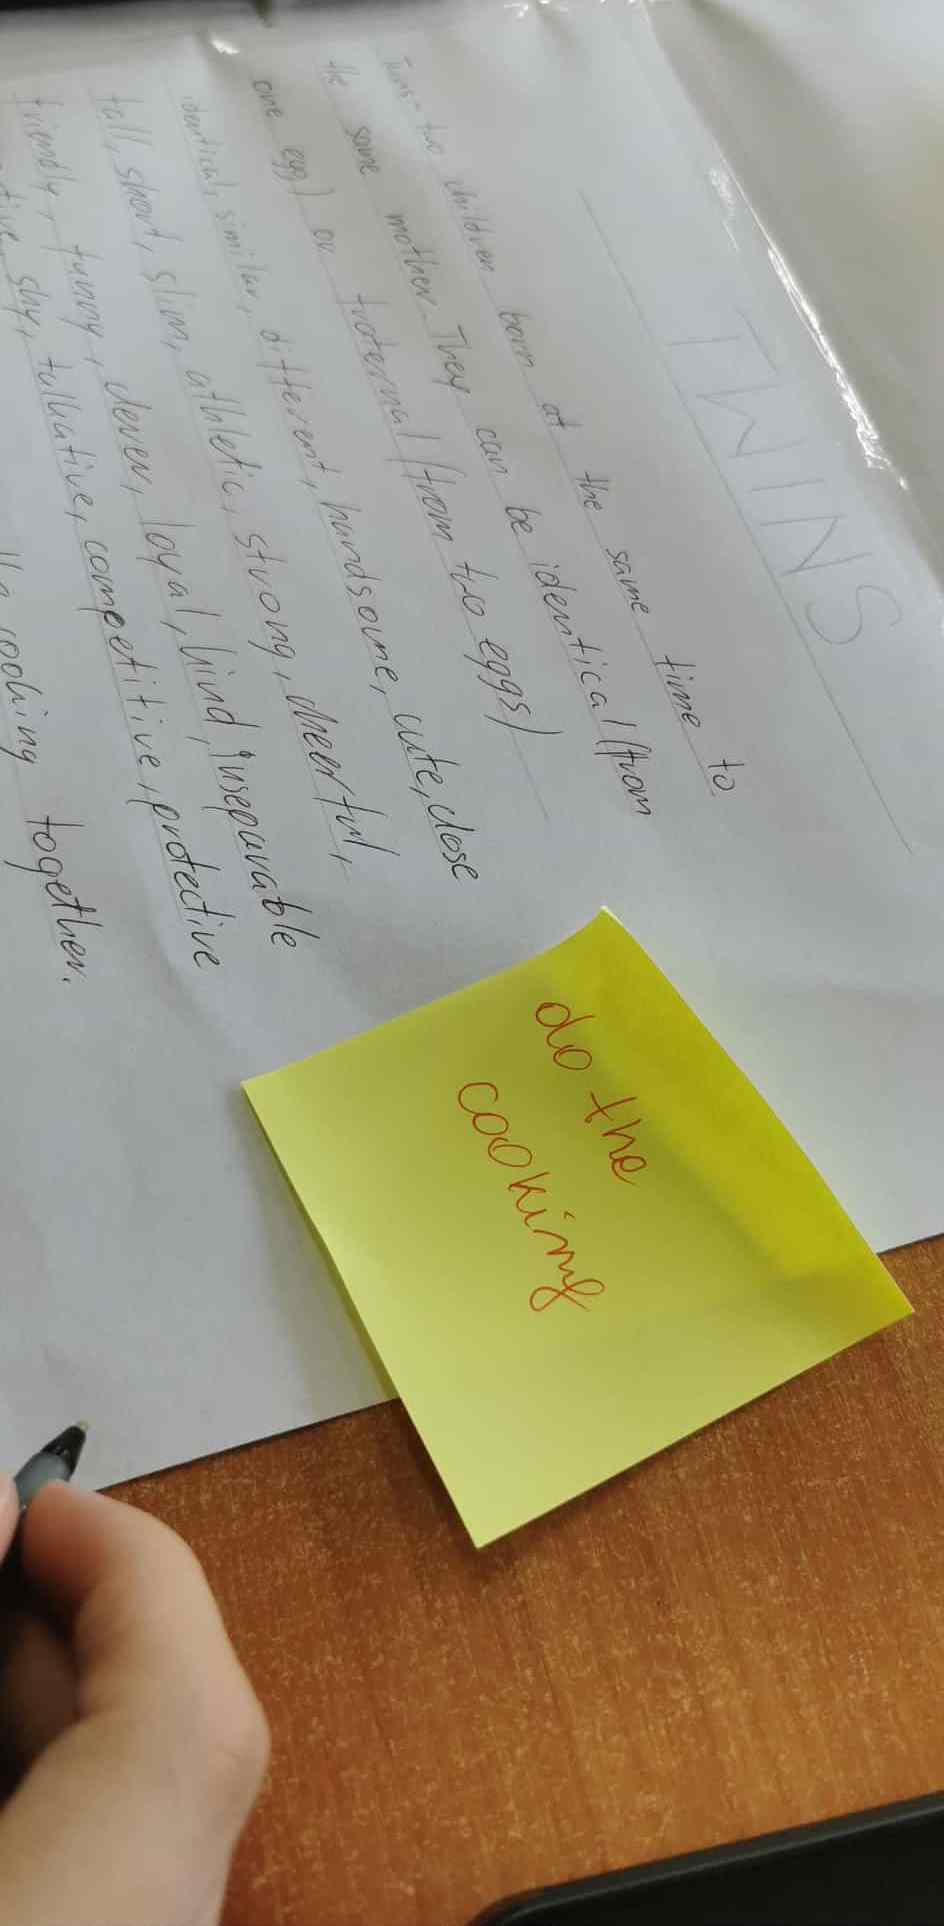 TWINS
Twins - two children born at the same time to
the same mother. They can be identical (from
one egg) or fraternal (from two eggs)
identical, similar, different, handsome, cute, close
tall, short, slim, athletic, strong, cheerful,
friendly, funny, clever, loyal, kind, inseparable
shy, talkative, competitive, protective
cooking together.
do the
cooking